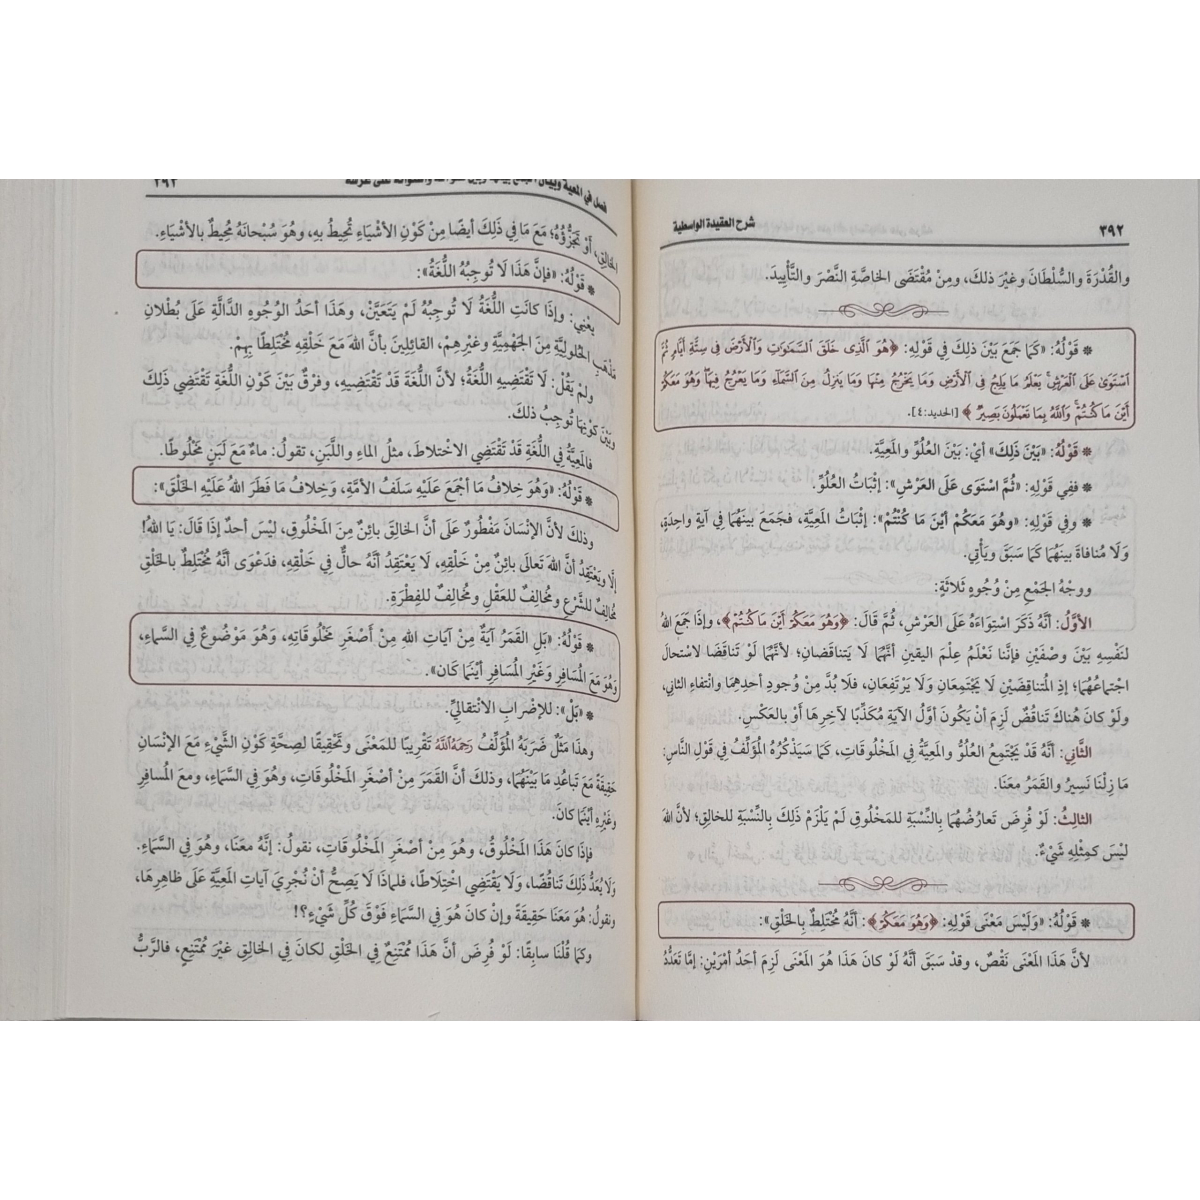 ٣٩٢
شرح العقيدة الواسطية
والقُدْرَةَ والسُّلْطَانَ وغيرَ ذلكَ، ومِنْ مُقْتَضَى الخاصَّةِ النَّصْرَ والتَّأْيِيدَ.
* قَوْلُهُ: «كَمَا جَمَعَ بَيْنَ ذلِكَ فِي قَوْلِهِ: ﴿هُوَ الَّذِي خَلَقَ السَّمَاوَاتِ وَالْأَرْضَ فِي سِتَّةِ أَيَّامٍ ثُمَّ
اسْتَوَى عَلَى الْعَرْشِ يَعْلَمُ مَا يَلِجُ فِي الْأَرْضِ وَمَا يَخْرُجُ مِنْهَا وَمَا يَنزِلُ مِنَ السَّمَاءِ وَمَا يَعْرُجُ فِيهَا وَهُوَ مَعَكُمْ
أَيْنَ مَا كُنتُمْ وَاللَّهُ بِمَا تَعْمَلُونَ بَصِيرٌ﴾ [الحديد:٤].
* قَوْلُهُ: «بَيْنَ ذَلِكَ» أيْ: بَيْنَ العُلُوِّ والمَعِيَّةِ.
* ففِي قَوْلِهِ: «ثُمَّ اسْتَوَى عَلَى العَرْشِ»: إثْبَاتُ العُلُوِّ.
* وفِي قَوْلِهِ: «وهُوَ مَعَكُمْ أيْنَ مَا كُنْتُمْ»: إثْبَاتُ المَعِيَّةِ، فجَمَعَ بيْنَهُمَا فِي آيةٍ واحِدَةٍ،
وَلَا مُنافاةَ بينَهُمَا كَمَا سَبَقَ ويَأْتِي.
ووجْهُ الجَمْعِ مِنْ وُجُوهٍ ثَلاثَةٍ:
الأوَّلُ: أنَّهُ ذَكَرَ اسْتِوَاءَهُ عَلَى العَرْشِ، ثُمَّ قَالَ: ﴿وَهُوَ مَعَكُمْ أَيْنَ مَا كُنتُمْ﴾، وإذَا جَمَعَ اللهُ
لنَفْسِهِ بَيْنَ وصْفَيْنِ فإنَّنا نَعْلَمُ عِلْمَ اليقينِ أنَّهُمَا لَا يَتناقَضانِ؛ لأنَّهُمَا لَوْ تَنَاقَضَا لاسْتحالَ
اجْتِماعُهُمَا؛ إذِ المُتناقِضَيْنِ لَا يَجْتَمِعَانِ وَلَا يَرْتَفِعَانِ، فلَا بُدَّ مِنْ وُجودِ أحدِهِمَا وانْتفاءِ الثاني،
ولَوْ كانَ هُناكَ تَناقُضٌ لَزِمَ أنْ يَكُونَ أوَّلُ الآيَةِ مُكَذِّبًا لآخِرِهَا أوْ بالعَكْسِ.
الثَّانِي: أنَّهُ قَدْ يَجْتَمِعُ العُلُوُّ والمَعِيَّةُ فِي المَخْلُوقَاتِ، كَمَا سيَذْكُرُهُ المُؤَلِّفُ فِي قَوْلِ النَّاسِ:
مَا زِلْنَا نَسِيرُ والقَمَرُ معَنَا.
الثالِثُ: لَوْ فُرِضَ تَعارُضُهُمَا بِالنِّسْبَةِ للمَخْلُوقِ لَمْ يَلْزَمْ ذَلِكَ بِالنِّسْبَةِ للخالِقِ؛ لأنَّ اللهَ
ليْسَ كمِثْلِهِ شَيْءٌ.
* قَوْلُهُ: «وَلَيْسَ مَعْنَى قَوْلِهِ: ﴿وَهُوَ مَعَكُمْ﴾: أنَّهُ مُخْتَلِطٌ بِالخَلْقِ»:
لأنَّ هَذَا المَعْنَى نَقْصٌ، وقدْ سَبَقَ أنَّهُ لَوْ كانَ هَذَا هُوَ المَعْنَى لَزِمَ أحَدُ أمْرَيْنِ: إمَّا تَعَدُّدُ
فصل في المعية وبيان
على عرشه
الخالِقِ، أوْ تَجَزُّؤُهُ؛ مَعَ مَا فِي ذَلِكَ أيضًا مِنْ كَوْنِ الأشْيَاءِ تُحيطُ بهِ، وهُوَ سُبْحانَهُ مُحِيطٌ بالأشْيَاءِ.
* قَوْلُهُ: «فإنَّ هَذَا لَا تُوجِبُهُ اللُّغَةُ»:
يعْنِي: وإذَا كانَتِ اللُّغَةُ لَا تُوجِبُهُ لَمْ يَتَعَيَّنْ، وهَذَا أحَدُ الوُجُوهِ الدَّالَّةِ عَلَى بُطْلانِ
مَذْهَبِ الحُلولِيَّةِ مِنَ الجَهْمِيَّةِ وغَيْرِهِمْ، القائِلِينَ بأنَّ اللهَ مَعَ خَلْقِهِ مُخْتَلِطًا بِهِمْ.
ولَمْ يَقُلْ: لَا تَقْتَضِيهِ اللُّغَةُ؛ لأنَّ اللُّغَةَ قَدْ تَقْتَضِيهِ، وفَرْقٌ بَيْنَ كَوْنِ اللُّغَةِ تَقْتَضِي ذَلِكَ
وبَيْنَ كَوْنِهَا تُوجِبُ ذلكَ.
فالمَعِيَّةُ فِي اللُّغَةِ قَدْ تَقْتَضِي الاخْتِلاطَ، مثلُ الماءِ واللَّبَنِ، تقولُ: ماءٌ مَعَ لَبَنٍ مَخْلُوطًا.
* قَوْلُهُ: «وَهُوَ خِلَافُ مَا أَجْمَعَ عَلَيْهِ سَلَفُ الأُمَّةِ، وَخِلَافُ مَا فَطَرَ اللهُ عَلَيْهِ الخَلْقَ»:
وذلكَ لأنَّ الإنْسَانَ مَفْطُورٌ عَلَى أنَّ الخالِقَ بائِنٌ مِنَ المَخْلُوقِ، ليْسَ أحدٌ إذَا قَالَ: يَا اللهُ!
إلَّا ويَعْتَقِدُ أنَّ اللهَ تَعالَى بائنٌ مِنْ خَلْقِهِ، لَا يَعْتَقِدُ أنَّهُ حالٌّ فِي خَلْقِهِ، فدَعْوَى أنَّهُ مُخْتَلِطٌ بالخَلْقِ
مُخالِفٌ للشَّرْعِ ومُخالِفٌ للعَقْلِ ومُخالِفٌ للفِطْرَةِ.
* قَوْلُهُ: «بَلِ القَمَرُ آيَةٌ مِنْ آيَاتِ اللهِ مِنْ أَصْغَرِ مَخْلُوقاتِهِ، وَهُوَ مَوْضُوعٌ فِي السَّمَاءِ،
وَهُوَ مَعَ المُسَافِرِ وَغَيْرِ المُسَافِرِ أيْنَمَا كَانَ».
* «بَلْ»: للإضْرابِ الانْتقاليِّ.
وهذا مَثَلٌ ضَرَبَهُ المُؤَلِّفُ رَحِمَهُ اللَّهُ تَقْريبًا للمَعْنَى وتَحْقِيقًا لِصِحَّةِ كَوْنِ الشَّيْءِ مَعَ الإنْسَانِ
حَقِيقَةً مَعَ تَبَاعُدِ مَا بَيْنَهُمَا، وذلكَ أنَّ القَمَرَ مِنْ أصْغَرِ المَخْلُوقَاتِ، وهُوَ فِي السَّمَاءِ، ومعَ المُسافِرِ
وغَيْرِهِ أيْنَمَا كانَ.
فإذَا كانَ هَذَا المَخْلُوقُ، وهُوَ مِنْ أصْغَرِ المَخْلُوقَاتِ، نقولُ: إنَّهُ معَنَا، وهُوَ فِي السَّمَاءِ.
وَلَا يُعَدُّ ذَلِكَ تَناقُضًا، وَلَا يَقْتَضِي اخْتِلاطًا، فلِماذَا لَا يَصِحُّ أنْ نُجْرِيَ آيَاتِ المَعِيَّةِ عَلَى ظاهِرِهَا،
ونقولُ: هُوَ مَعَنَا حَقِيقَةً وإنْ كانَ هُوَ فِي السَّمَاءِ فَوْقَ كُلِّ شَيْءٍ؟!
وكَمَا قُلْنَا سابِقًا: لَوْ فُرِضَ أنَّ هَذَا مُمْتَنِعٌ فِي الخَلْقِ لكانَ فِي الخالِقِ غَيْرَ مُمْتَنِعٍ، فالرَّبُّ